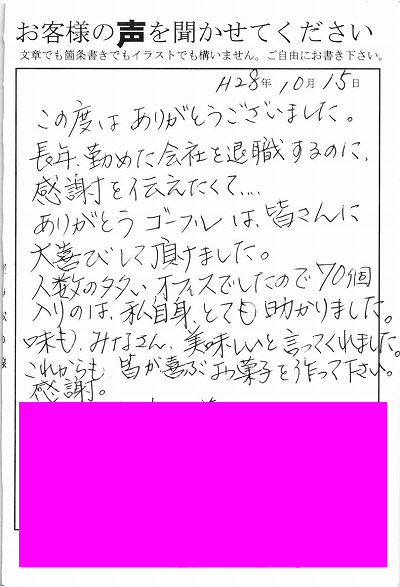 お客様の声を聞かせてください
文章でも箇条書きでもイラストでも構いません。ご自由にお書き下さい。
H28年 10月 15日
この度は ありがとうございました。
長年、勤めた会社を退職するのに、
感謝を伝えたくて…
ありがとうゴーフルは、皆さんに
大喜びして頂けました。
人数の多い オフィスでしたので 70個
入りのは、私自身、とても 助かりました。
味も、みなさん、美味しいと言ってくれました。
これからも 皆が喜ぶお菓子を作って下さい。
感謝。